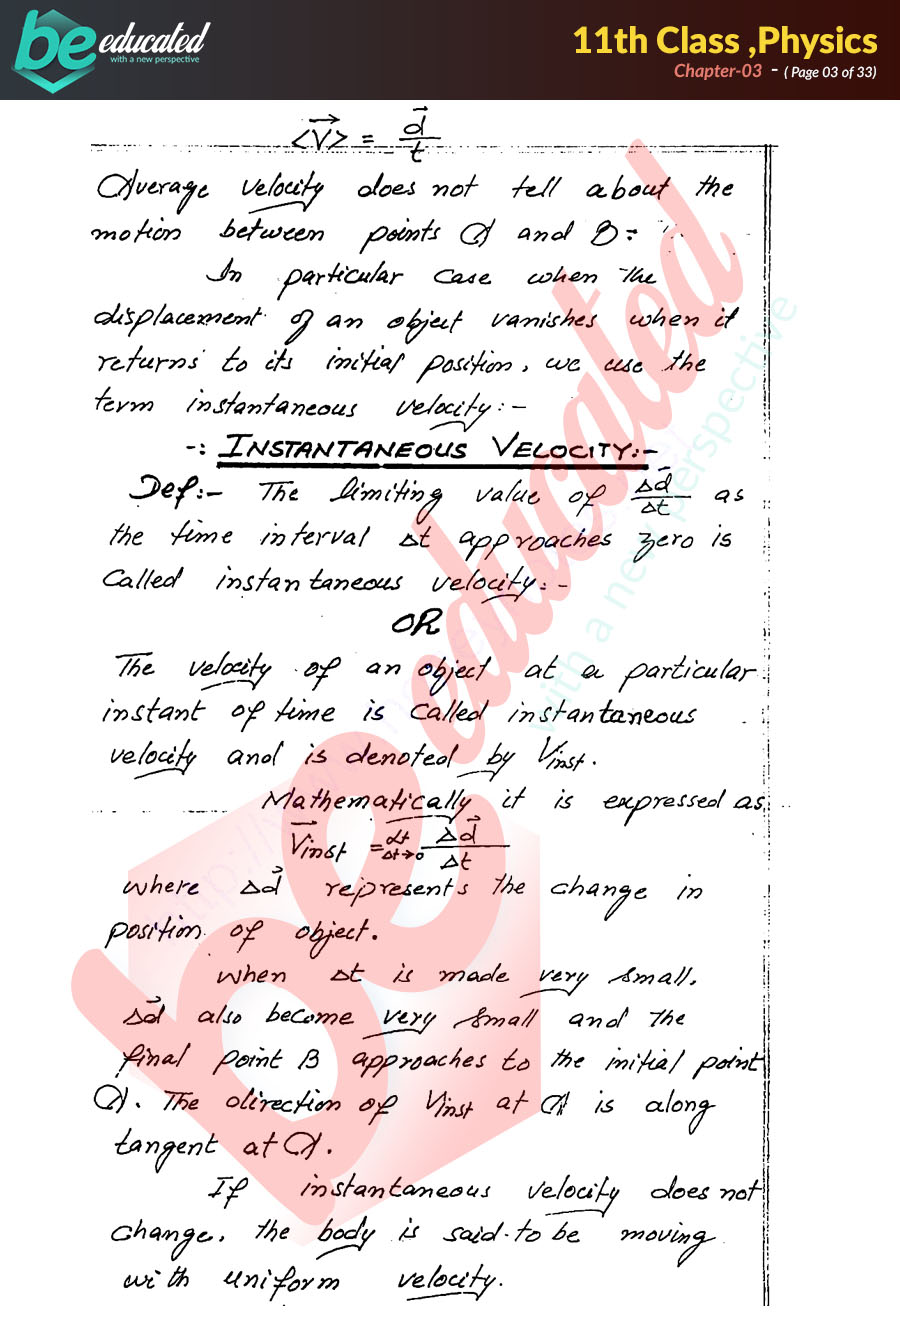 be educated
with a new perspective
11th Class ,Physics
Chapter-03 - ( Page 03 of 33)
<V⃗> = d⃗/t
Average velocity does not tell about the
motion between points A and B:-
In particular case when the
displacement of an object vanishes when it
returns to its initial position, we use the
term instantaneous velocity:-
-: INSTANTANEOUS VELOCITY:-
Def:- The limiting value of Δd⃗/Δt as
the time interval Δt approaches zero is
called instantaneous velocity:-
OR
The velocity of an object at a particular
instant of time is called instantaneous
velocity and is denoted by Vinst.
Mathematically it is expressed as
V⃗inst = Lt Δt→0 Δd⃗/Δt
where Δd⃗ represents the change in
position of object.
When Δt is made very small,
Δd⃗ also become very small and the
final point B approaches to the initial point
A. The direction of Vinst at A is along
tangent at A.
If instantaneous velocity does not
change, the body is said to be moving
with uniform velocity.
be educated
with a new perspective